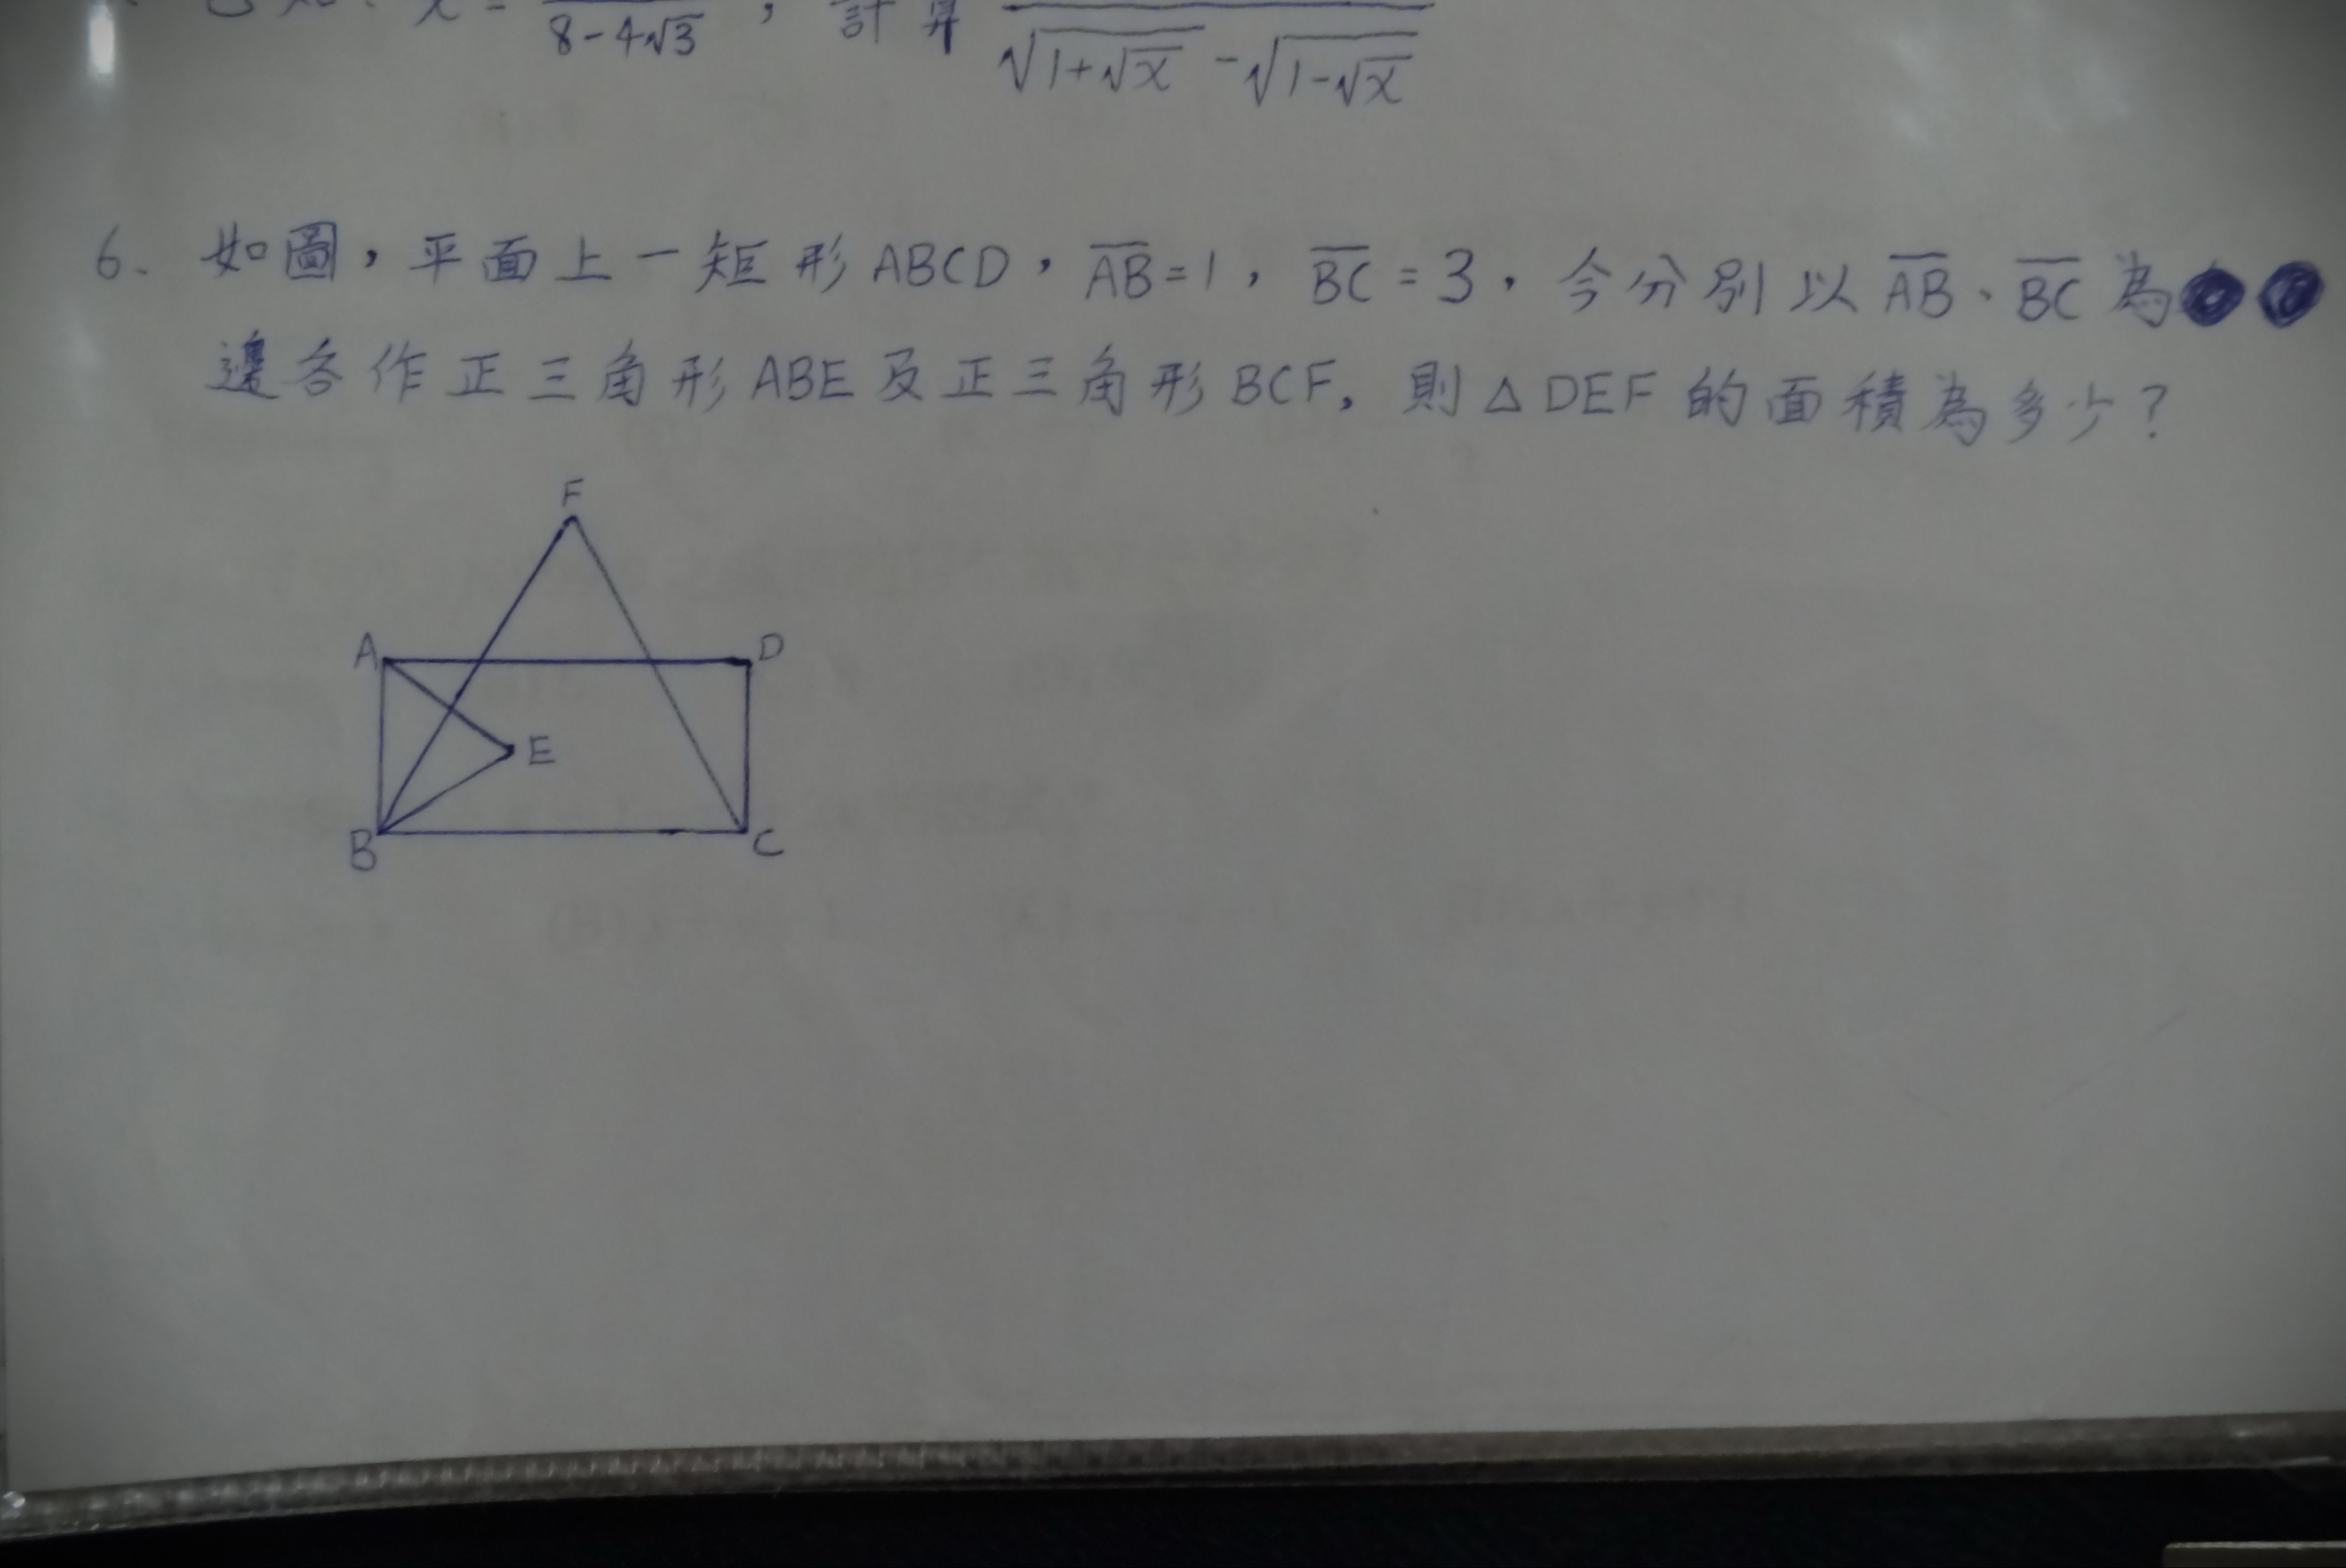 x = 8-4√3 , 計算 √1+√x -√1-√x
6. 如圖，平面上一矩形ABCD，AB=1，BC=3，今分別以AB、BC為
邊各作正三角形ABE及正三角形BCF, 則△DEF的面積為多少?
F
A D
E
B C